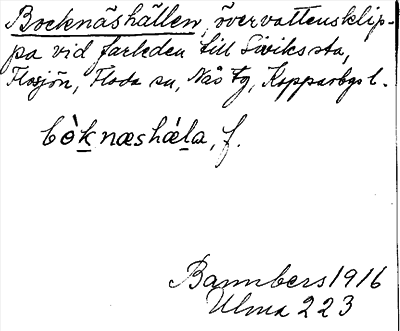 Bocknäshällen, övervattensklip-
pa vid farleden till Siviks sta,
Flosjön, Floda sn, Nås tg, Kopparbgs l.
bò̀knæshǽla, f.
Bannbers 1916
Ulma 223